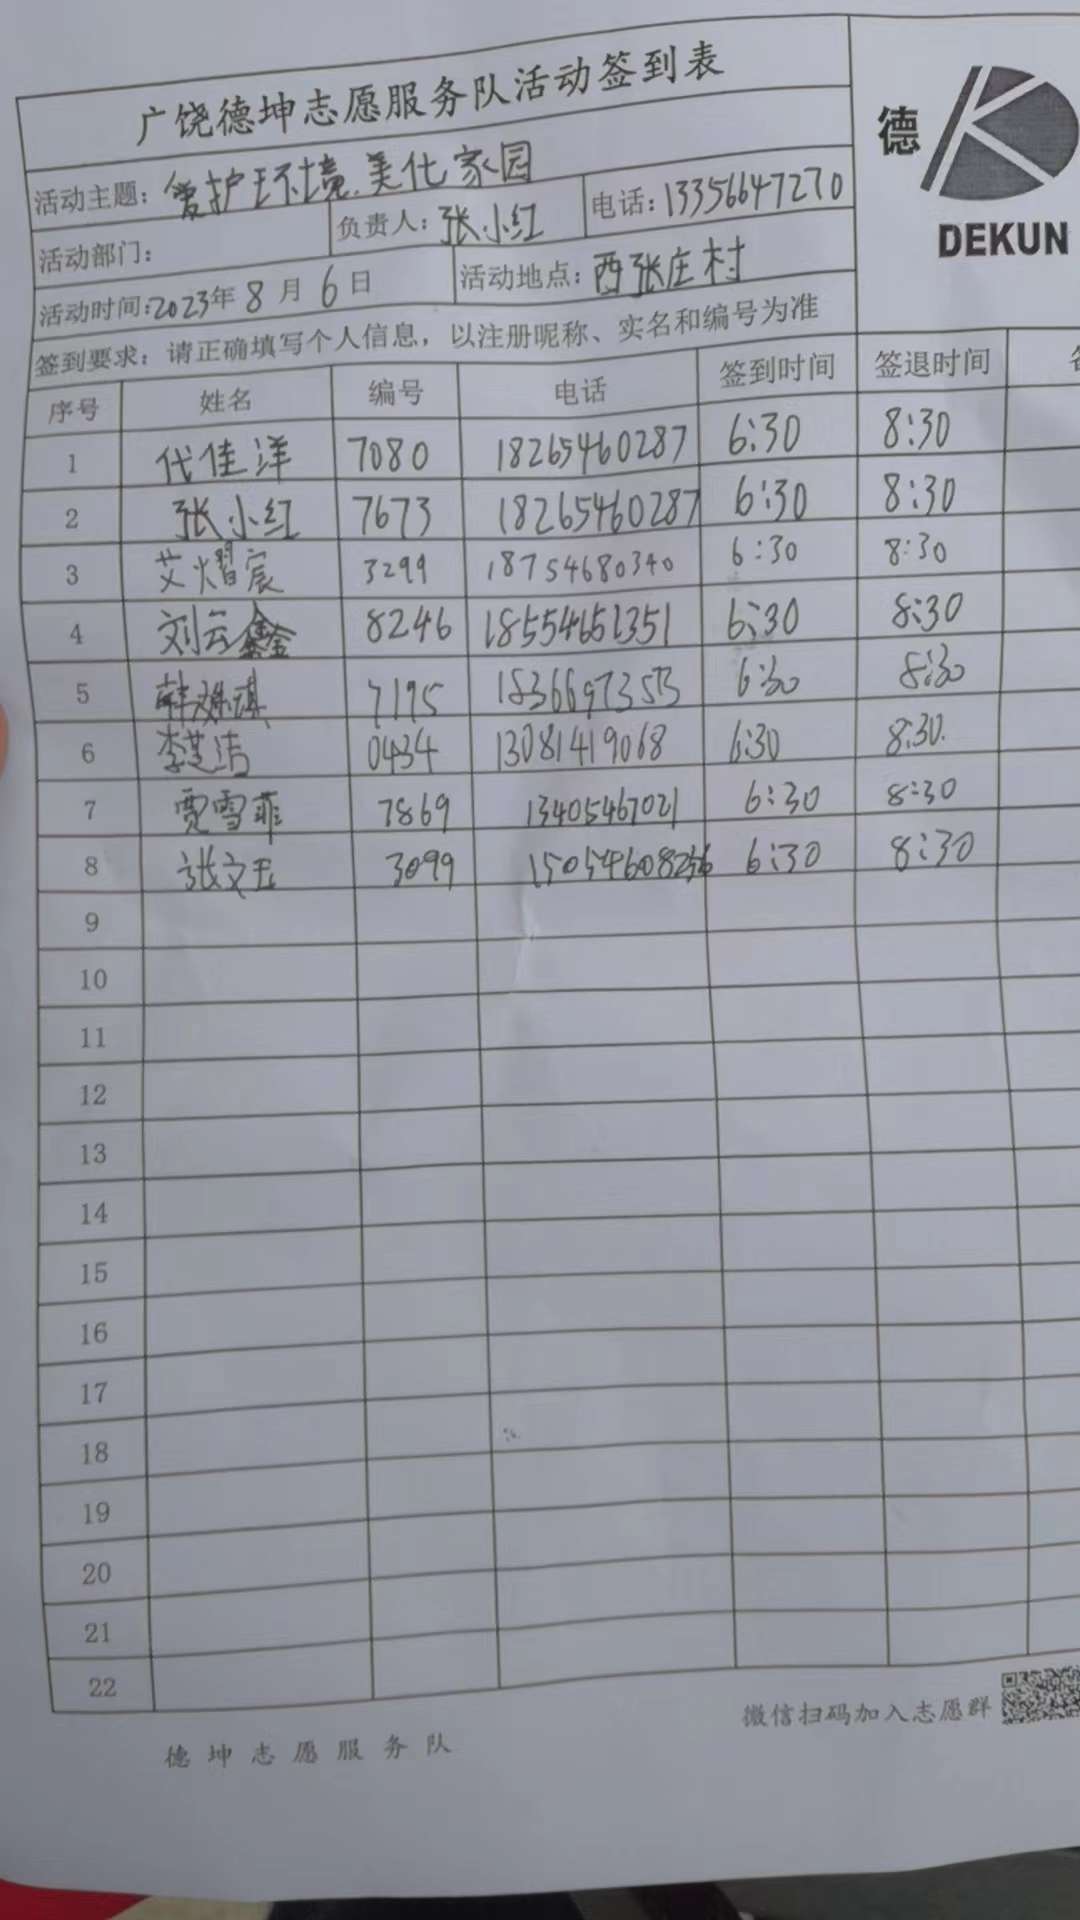 广饶德坤志愿服务队活动签到表
德
DEKUN
活动主题：爱护环境.美化家园
活动部门： 负责人：张小红 电话：13356647270
活动时间：2023年8月6日 活动地点：西张庄村
签到要求：请正确填写个人信息，以注册昵称、实名和编号为准
序号 姓名 编号 电话 签到时间 签退时间
1 代佳洋 7080 18265460287 6:30 8:30
2 张小红 7673 18265460287 6:30 8:30
3 艾熠宸 3299 18754680340 6:30 8:30
4 刘云鑫 8246 18554651351 6:30 8:30
5 7195 6:30 8:30
6 李芝洁 0434 13081419068 6:30 8:30.
7 贾雪菲 7869 13405467021 6:30 8:30
8 张文玉 3099 6:30 8:30
9
10
11
12
13
14
15
16
17
18
19
20
21
22
微信扫码加入志愿群
德坤志愿服务队